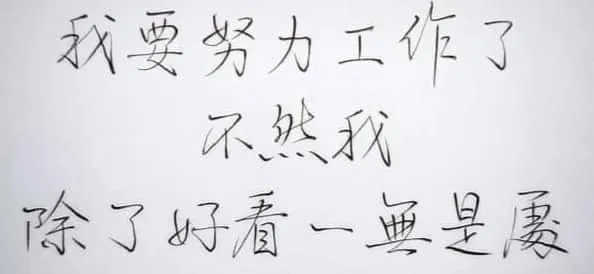 我要努力工作了
不然我
除了好看一無是處